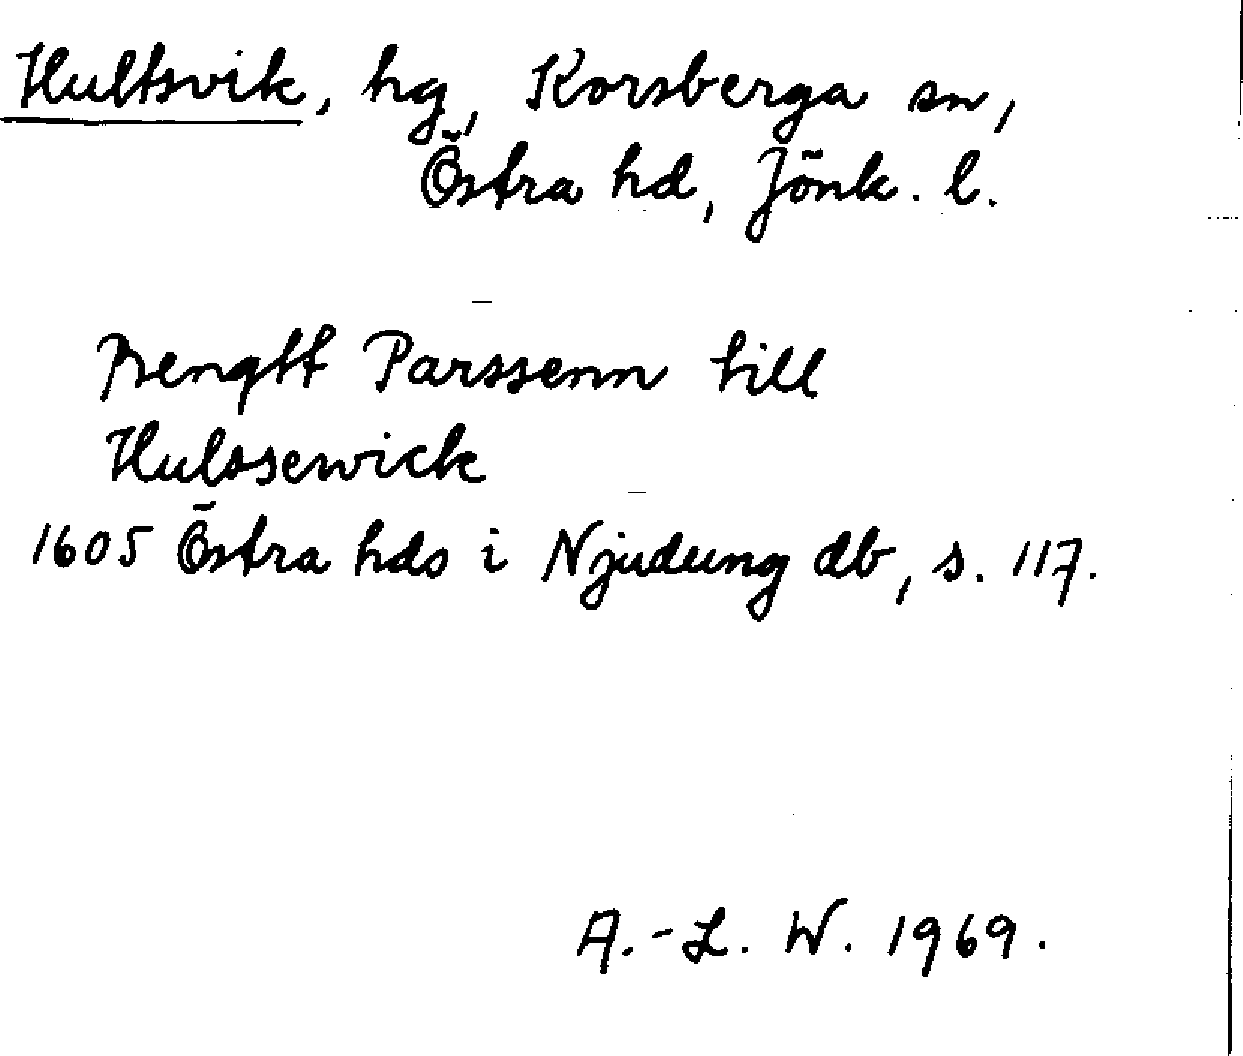 Hultsvik, hg, Korsberga sn,
Östra hd, Jönk. l.
Bengtt Parssenn till
Hulssewick
1605 Östra hds i Njudung db, s. 117.
A.-L. W. 1969.